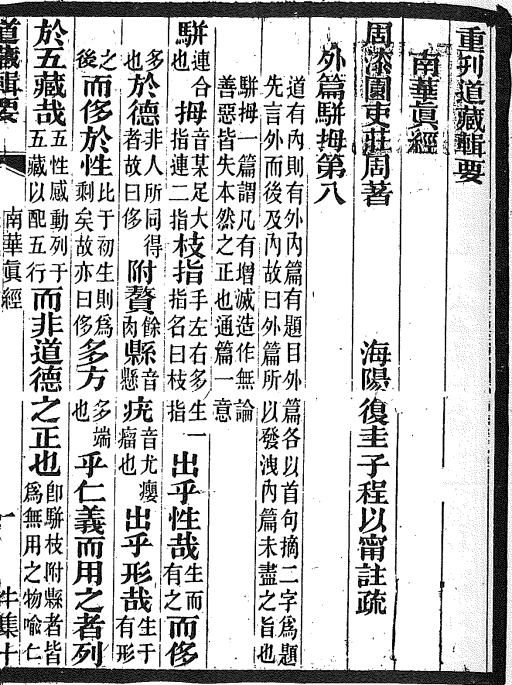 重刋道藏輯要
南華眞經
周漆園吏莊周著 海陽復圭子程以甯註疏
外篇駢拇第八
道有內則有外內篇有題目外篇各以首句摘二字爲題
先言外而後及內故曰外篇所以發洩內篇未盡之旨也
駢拇一篇謂凡有增減造作無論
善惡皆失本然之正也通篇一意
駢連合也拇音某足大指連二指枝指手左右多生一指名曰枝指出乎性哉生而有之而侈
多也於德非人所同得者故曰侈附贅餘肉縣音懸疣音尤癭瘤也出乎形哉生于有形
之後而侈於性比于初生則爲剩矣故亦曰侈多方多端也乎仁義而用之者列
於五藏哉五性感動列于五藏以配五行而非道德之正也卽駢枝附縣者皆爲無用之物喻仁
道藏輯要 南華眞經 一